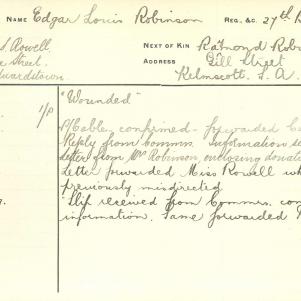 NAME Edgar Louis Robinson REG. &C. 27th B
S. Rowell, NEXT OF KIN Raymond Robi
Street. ADDRESS Gill Street
Edwardstown Kelmscott. S. A.
1/P "Wounded"
P/Cable confirmed. forwarded C
Reply from Commrs. Information se
Letter from Mr Robinson enclosing donati
Letter forwarded Miss Rowell wh
previously misdirected
Slip received from Commrs. con
information. Same forwarded